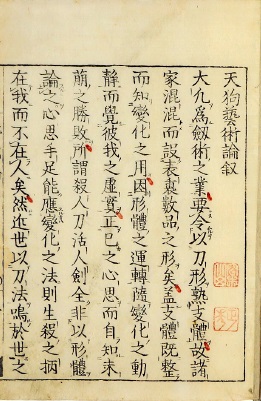 天狗藝術論叙
大凡爲劔術之業要令以刀形熟支體故諸
家混混而設表裏數品之形矣蓋支體既整
而知變化之用因形體之運轉隨變化之動
静而覺彼我之虚實正己之心思而自知未
萠之勝敗所謂殺人刀活人劍全非以形體
論之心思手足能應變化之法則生殺之柄
在我而不在人矣然近世以刀法鳴於世之